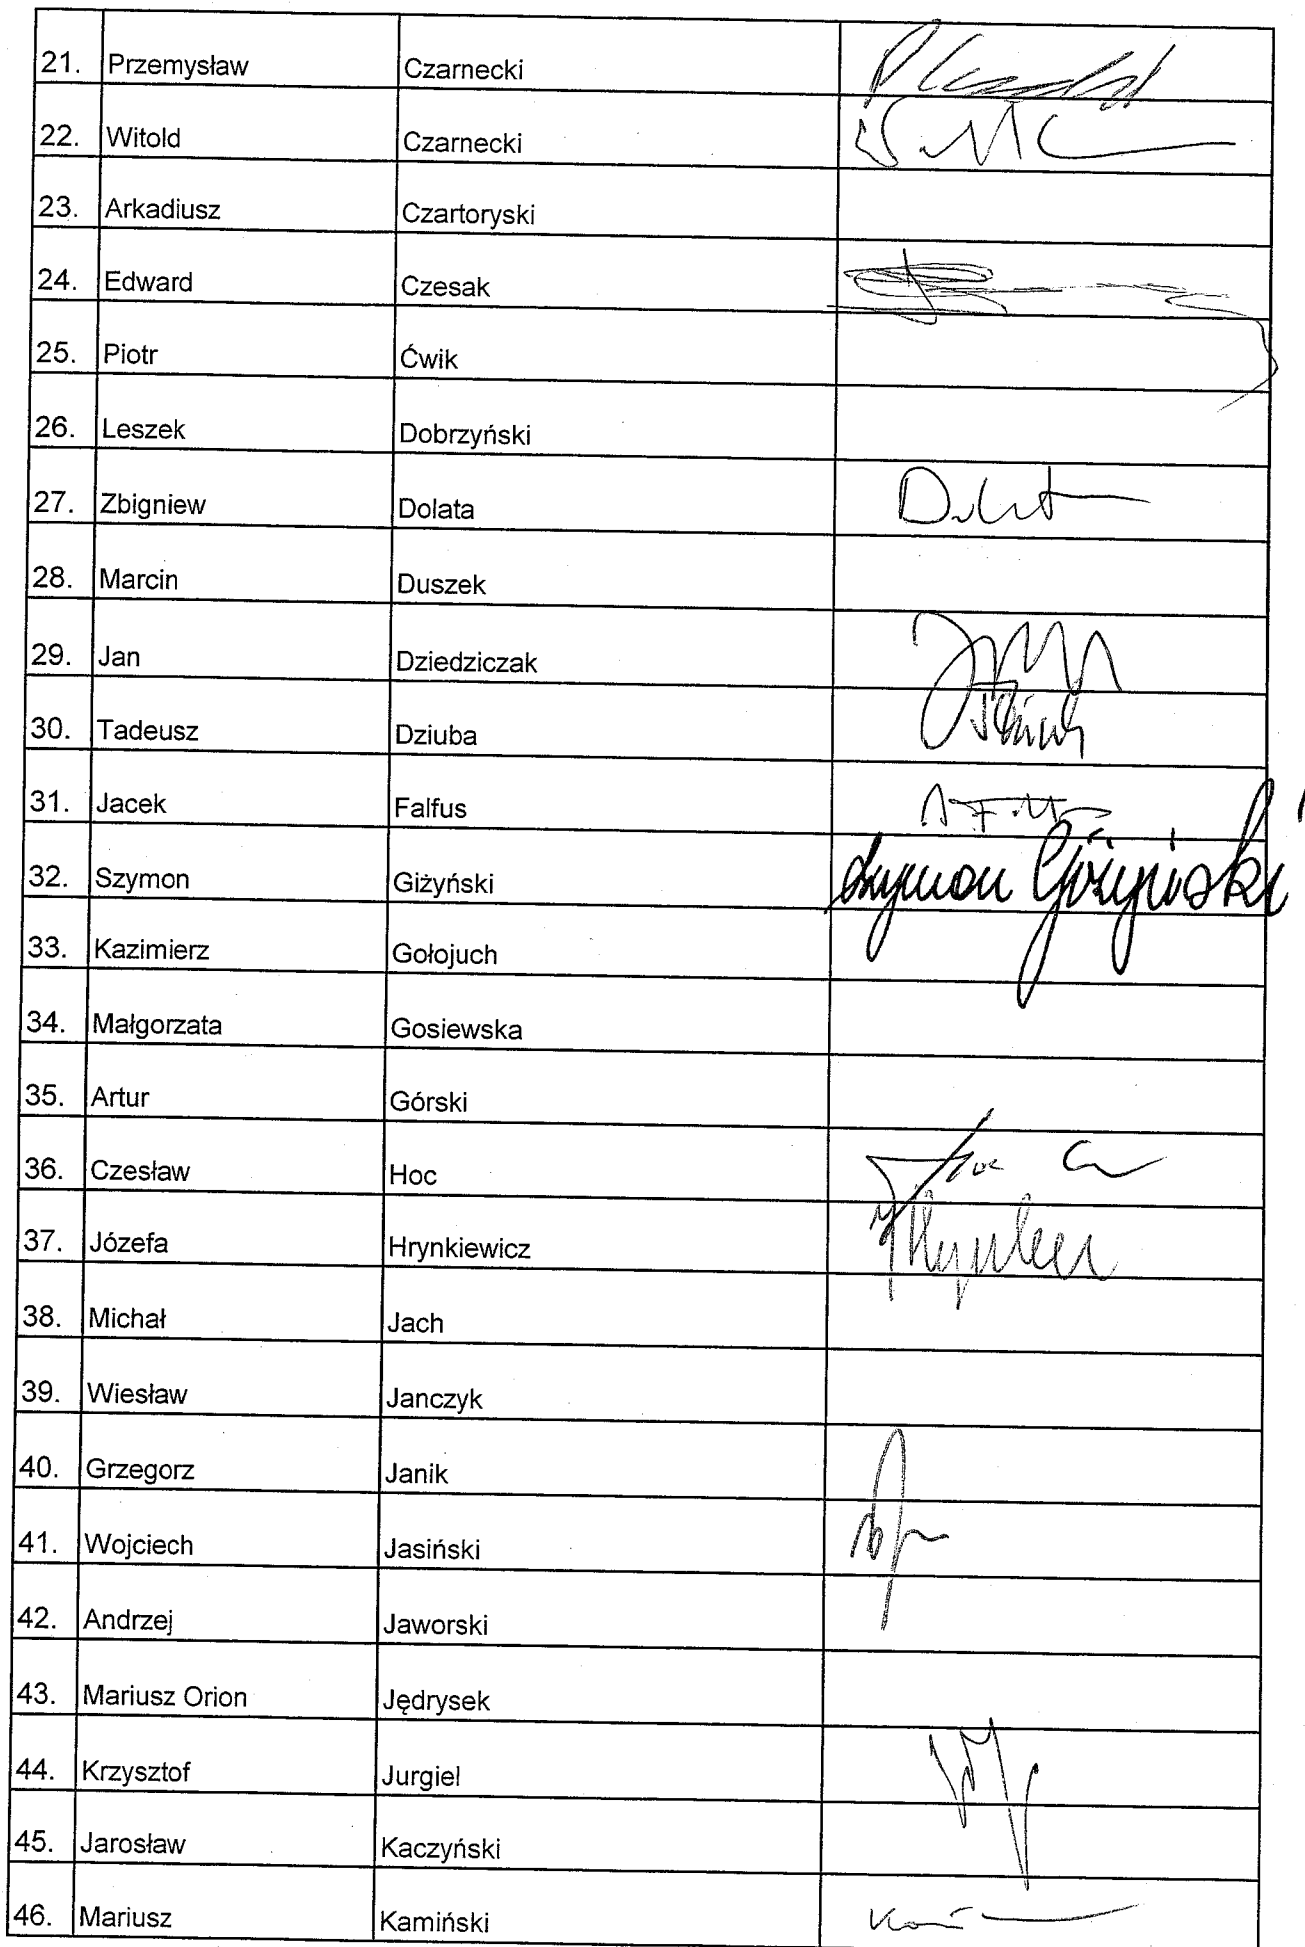 21. Przemysław Czarnecki
22. Witold Czarnecki
23. Arkadiusz Czartoryski
24. Edward Czesak
25. Piotr Ćwik
26. Leszek Dobrzyński
27. Zbigniew Dolata
28. Marcin Duszek
29. Jan Dziedziczak
30. Tadeusz Dziuba
31. Jacek Falfus
32. Szymon Giżyński Szymon Giżyński
33. Kazimierz Gołojuch
34. Małgorzata Gosiewska
35. Artur Górski
36. Czesław Hoc
37. Józefa Hrynkiewicz
38. Michał Jach
39. Wiesław Janczyk
40. Grzegorz Janik
41. Wojciech Jasiński
42. Andrzej Jaworski
43. Mariusz Orion Jędrysek
44. Krzysztof Jurgiel
45. Jarosław Kaczyński
46. Mariusz Kamiński